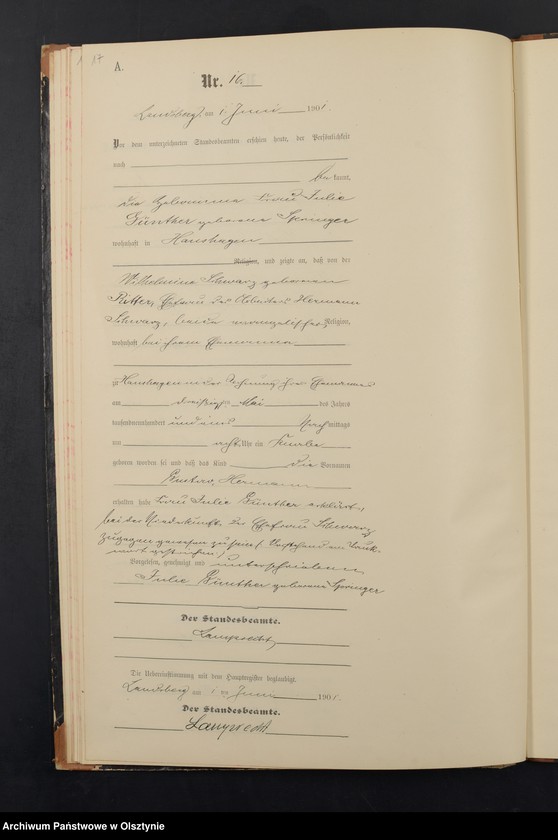 17
A.
Nr. 16
Landsberg, am 1. Juni 1901.
Vor dem unterzeichneten Standesbeamten erschien heute, der Persönlichkeit
nach
bekannt,
die Hebeamme Frau Julie
Günther geborene Springer
wohnhaft in Hanshagen
Religion, und zeigte an, daß von der
Wilhelmine Schwarz geborenen
Ritter, Ehefrau des Arbeiters Hermann
Schwarz, beide evangelischer Religion,
wohnhaft bei ihrem Ehemanne
zu Hanshagen in der Wohnung ihres Ehemannes
am dreißigsten Mai des Jahres
tausendneunhundert und eins Nachmittags
um acht Uhr ein Knabe
geboren worden sei und daß das Kind die Vornamen
Gustav, Hermann
erhalten habe. Frau Julie Günther erklärte,
bei der Niederkunft der Ehefrau Schwarz
zugegen gewesen zu sein. (Vorstehend ein Druck-
wort gestrichen)
Vorgelesen, genehmigt und unterschrieben
Julie Günther geborene Springer
Der Standesbeamte.
Lamprecht
Die Uebereinstimmung mit dem Hauptregister beglaubigt.
Landsberg am 1 ten Juni 1901.
Der Standesbeamte.
Lamprecht
Archiwum Państwowe w Olsztynie